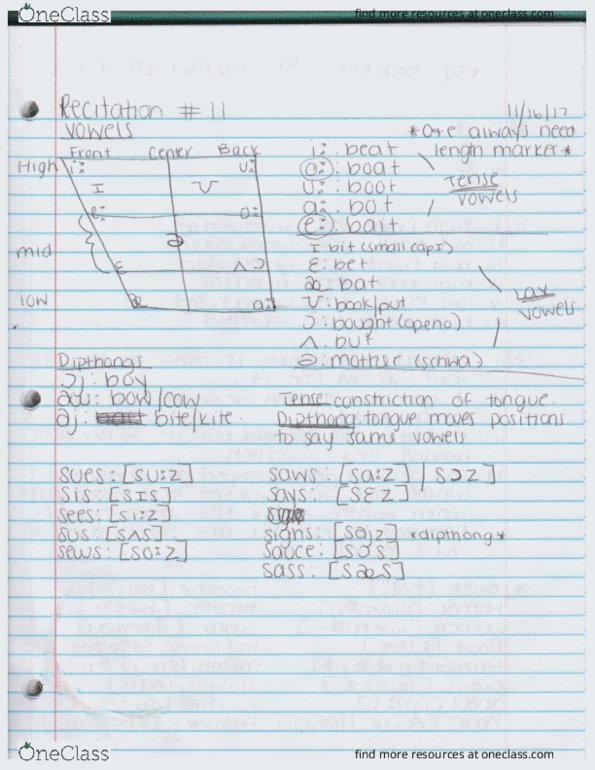 OneClass
find more resources at oneclass.com
Recitation #11
11/16/17
vowels
*O:e always need length marker*
Front Center Back
High
i: u:
I ʊ
e: o:
ə
mid
ɛ ʌ ɔ
low
æ a:
i: beat
o: boat
u: boot
a: bot
e: bait
Tense vowels
I bit (small cap I)
ɛ: bet
æ: bat
ʊ: book/put
ɔ: bought (open o)
ʌ: but
ə: mother (schwa)
Lax vowels
Dipthongs
ɔj: boy
aw: bow/cow
aj: bite/kite
Tense: constriction of tongue.
Dipthong: tongue moves positions
to say same vowels
sues: [su:z]
sis: [sIs]
sees: [si:z]
sus: [sʌs]
sews: [so:z]
saws: [sa:z] | sɔz]
says: [sɛz]
signs: [sajz] *dipthong*
sauce: [sɔs]
sass: [sæs]
OneClass
find more resources at oneclass.com